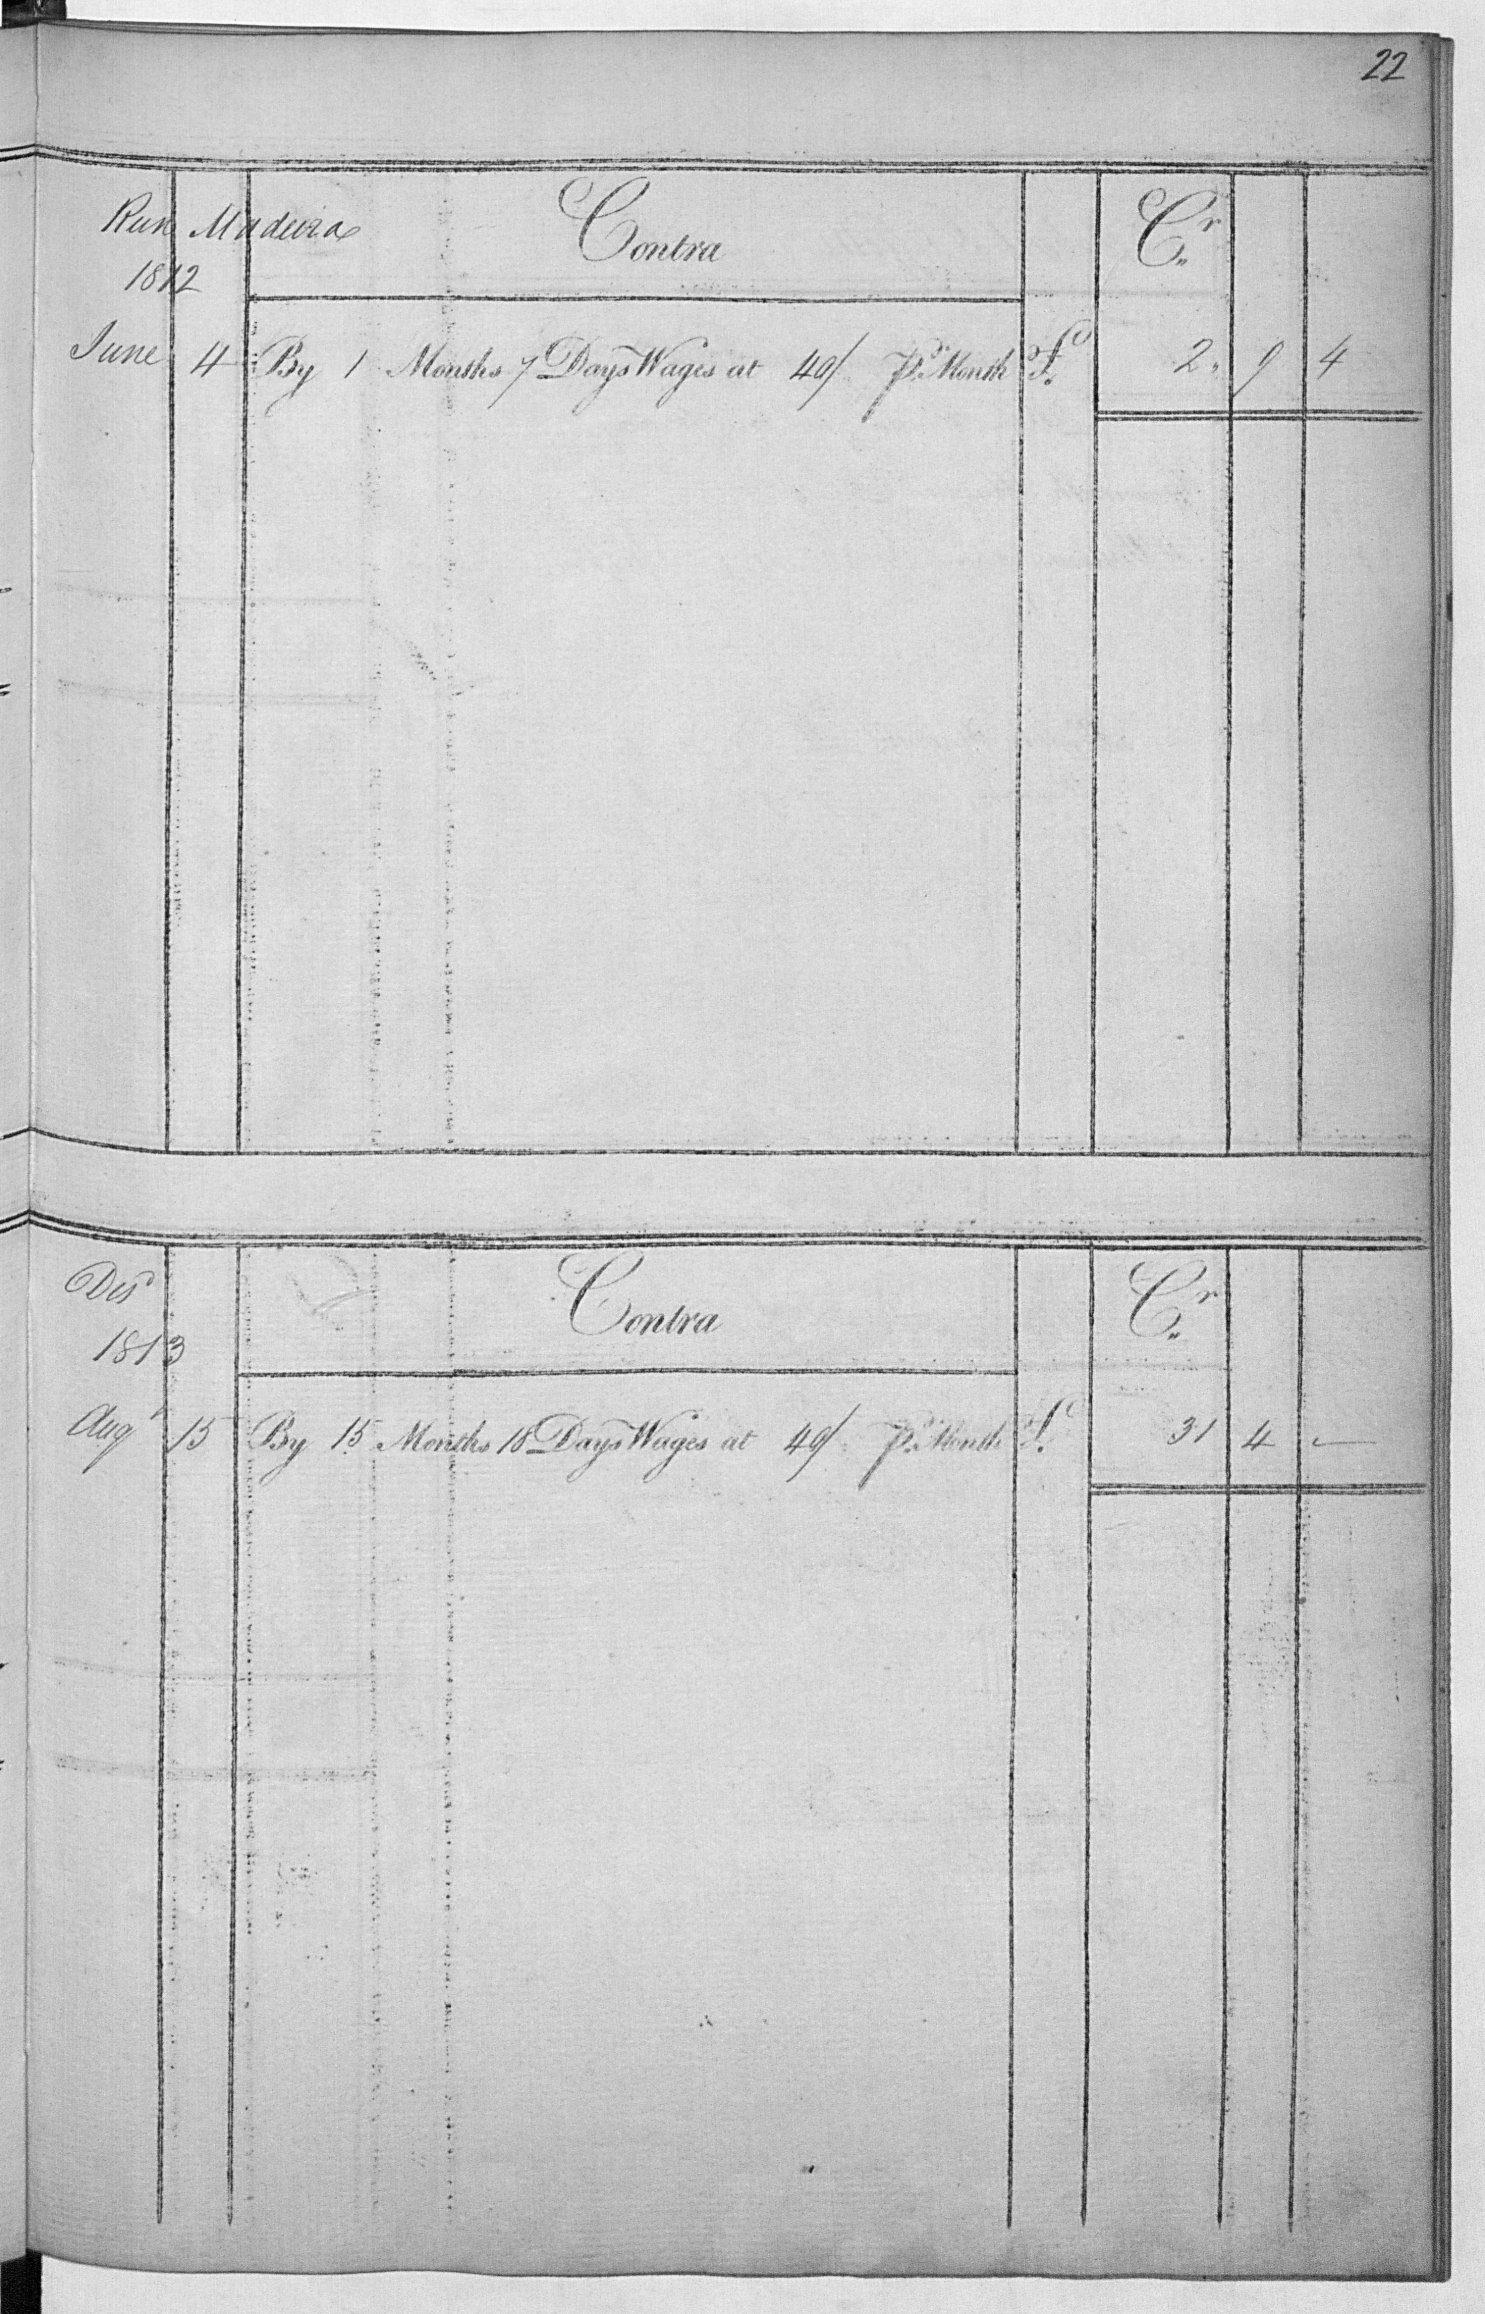 22
Run Madeira Contra Cr
1812
June 4 By 1 Months 7 Days Wages at 40/ Pr Month £ 2 9 4
Disd Contra Cr
1813
Augt 15 By 15 Months 18 Days Wages at 40/ Pr Month £ 31 4 —